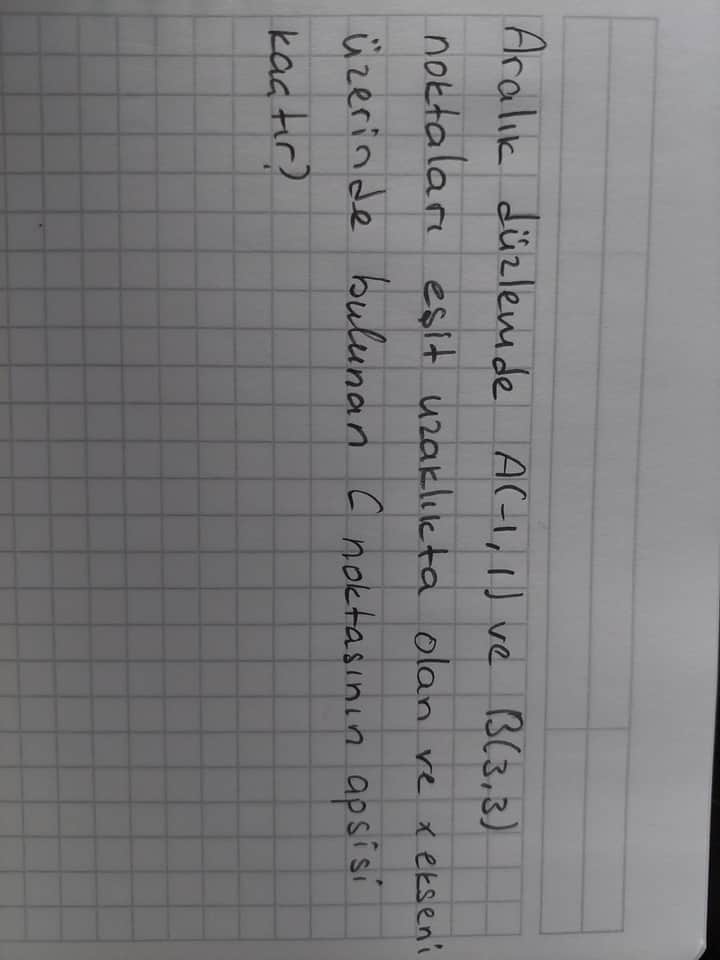 Aralık düzlemde A(-1,1) ve B(3,3)
noktaları eşit uzaklıkta olan ve x ekseni
üzerinde bulunan C noktasının apsisi
kaçtır?